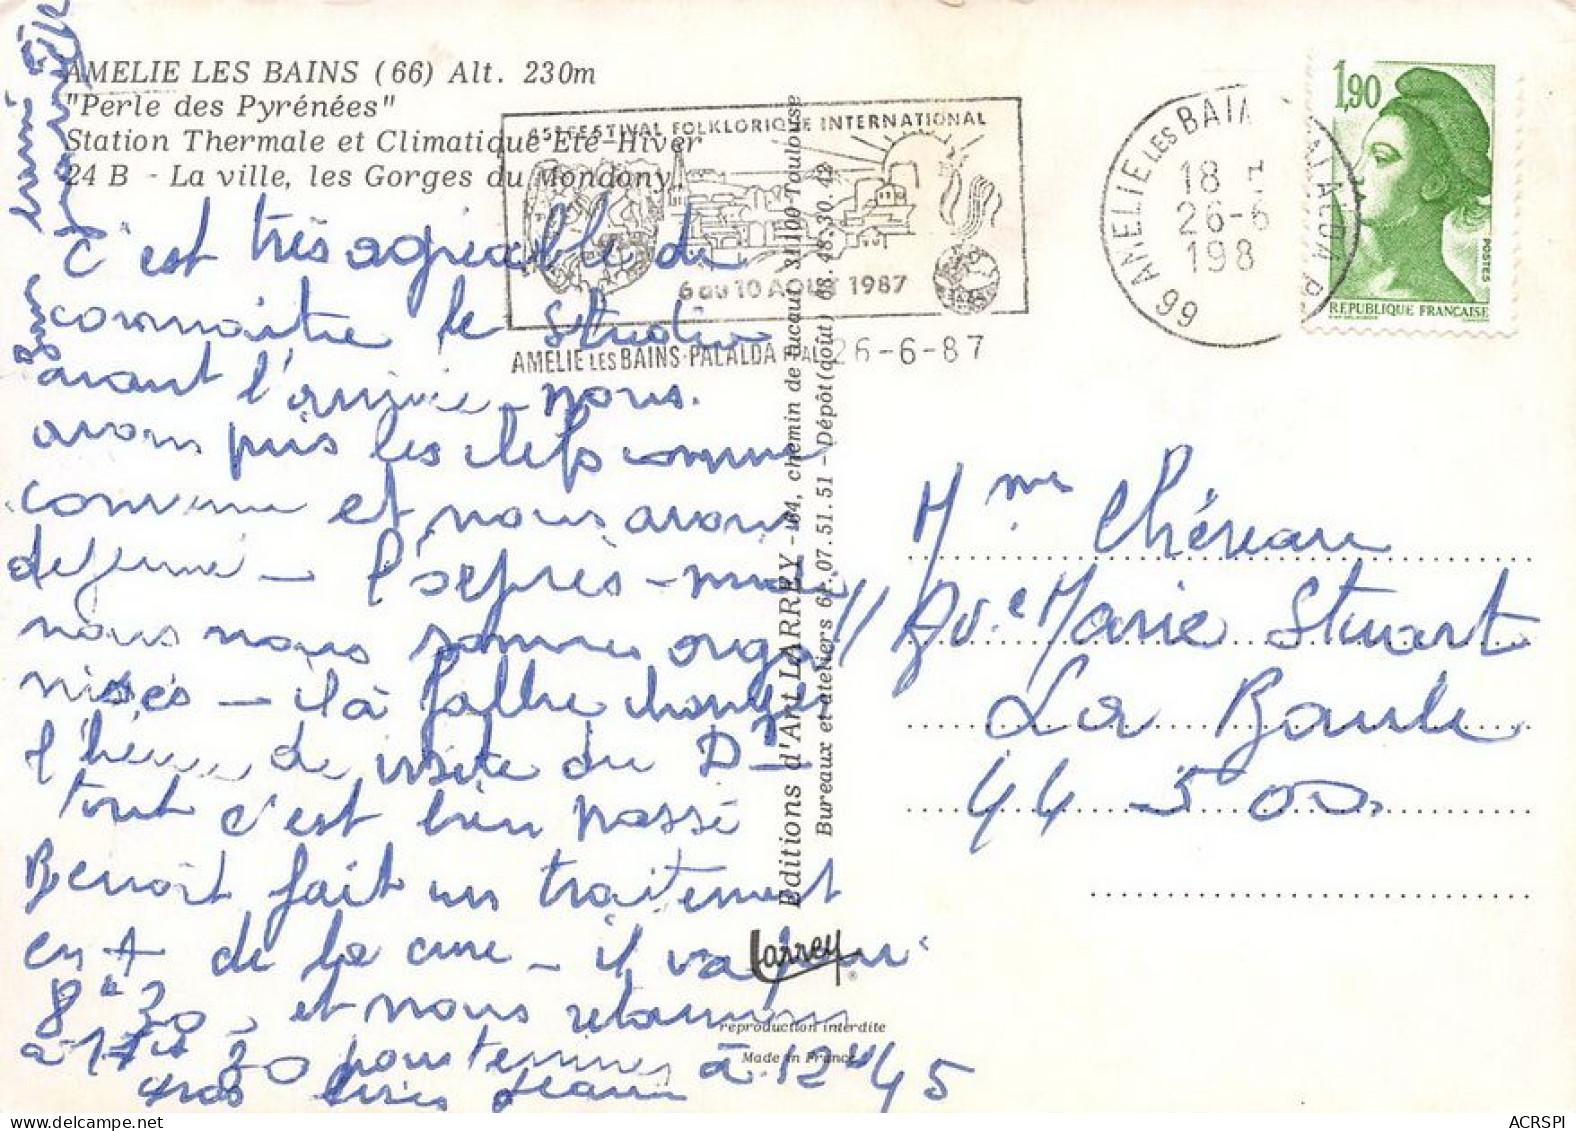 AMELIE LES BAINS (66) Alt. 230m
"Perle des Pyrénées"
Station Thermale et Climatique Eté-Hiver
24 B - La ville, les Gorges du Mondony.
FESTIVAL FOLKLORIQUE INTERNATIONAL
6 au 10 AOUT 1987
AMELIE LES BAINS-PALALDA P.AL 26-6-87
66 AMELIE LES BAINS PALALDA P.
18
26-6
198
1,90
POSTES
REPUBLIQUE FRANÇAISE
C'est très agréable de
connaitre le studio
avant l'arrivée - nous
avons pris les clefs comme
convenu et nous avons
dejeuné - l'après-midi
nous nous sommes orga
nisés - il a fallu changer
l'heure de visite du Dr
tout c'est bien passé
Benoît fait un traitement
en + de la cure - il va
8h30 - et nous retournons
à 11h30 pour terminer à 12h45
gros bises
Mme Chéreau
Av. Marie Stuart
La Baule
44 500
Editions d'Art LARREY - 84, chemin de Ducaud 31100 Toulouse
Bureaux et ateliers 61.07.51.51 - Dépôt (août) 68.48.30.42
Larrey
®
reproduction interdite
Made in France
ACRSPI